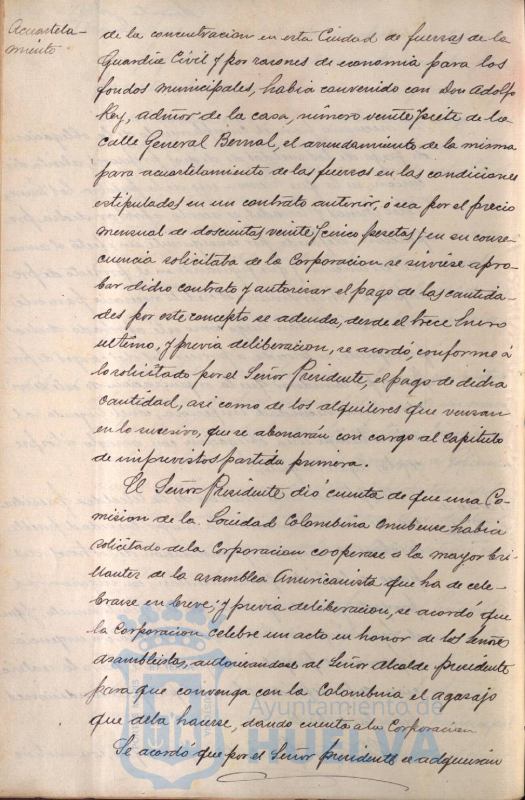 Acuartela-
miento.
de la concentracion en esta Ciudad de fuerzas de la
Guardia Civil y por razones de economia para los
fondos municipales, habia convenido con Don Adolfo
Rey, admor de la casa, número veinte y siete de la
calle General Bernal, el arrendamiento de la misma
para acuartelamiento de las fuerzas en las condiciones
estipuladas en un contrato anterior, ó sea por el precio
mensual de doscientas veinte y cinco pesetas y en su conse-
cuencia solicitaba de la Corporacion se sirviese apro-
bar dicho contrato y autorizar el pago de las cantida-
des por este concepto se adeuda, desde el trece Enero
ultimo, y previa deliberacion, se acordó, conforme á
lo solicitado por el Señor Presidente, el pago de dicha
cantidad, asi como de los alquileres que venzan
en lo sucesivo, que se abonarán con cargo al capitulo
de imprevistos partida primera.
El Señor Presidente dió cuenta de que una Co-
mision de la Sociedad Colombina Onubense habia
solicitado de la Corporacion cooperase a la mayor bri-
llantez de la asamblea Americanista que ha de cele-
brarse en breve; y previa deliberacion, se acordó que
la Corporacion celebre un acto en honor de los señores
asambleistas, autorizandose al Señor Alcalde presidente
para que convenga con la Colombina el agasajo
que deba hacerse, dando cuenta a la Corporacion
Se acordó que por el Señor presidente se adquieran
Ayuntamiento de
HUELVA